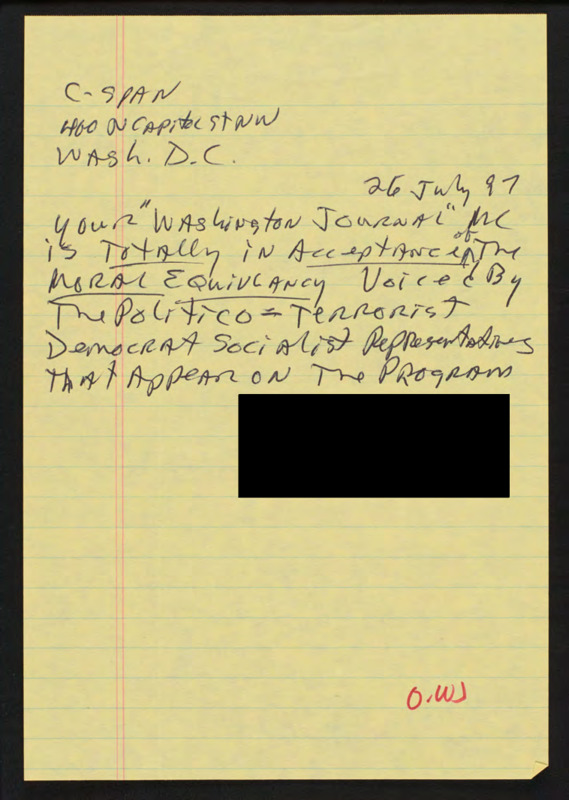 C-SPAN
400 N Capitol St NW
Wash. D.C.
26 July 97
Your "Washington Journal" MC
is Totally in Acceptance of The
Moral Equivlancy Voiced By
The Politico = Terrorist
Democrat Socialist Representatives
That Appear on The Program
O.WJ